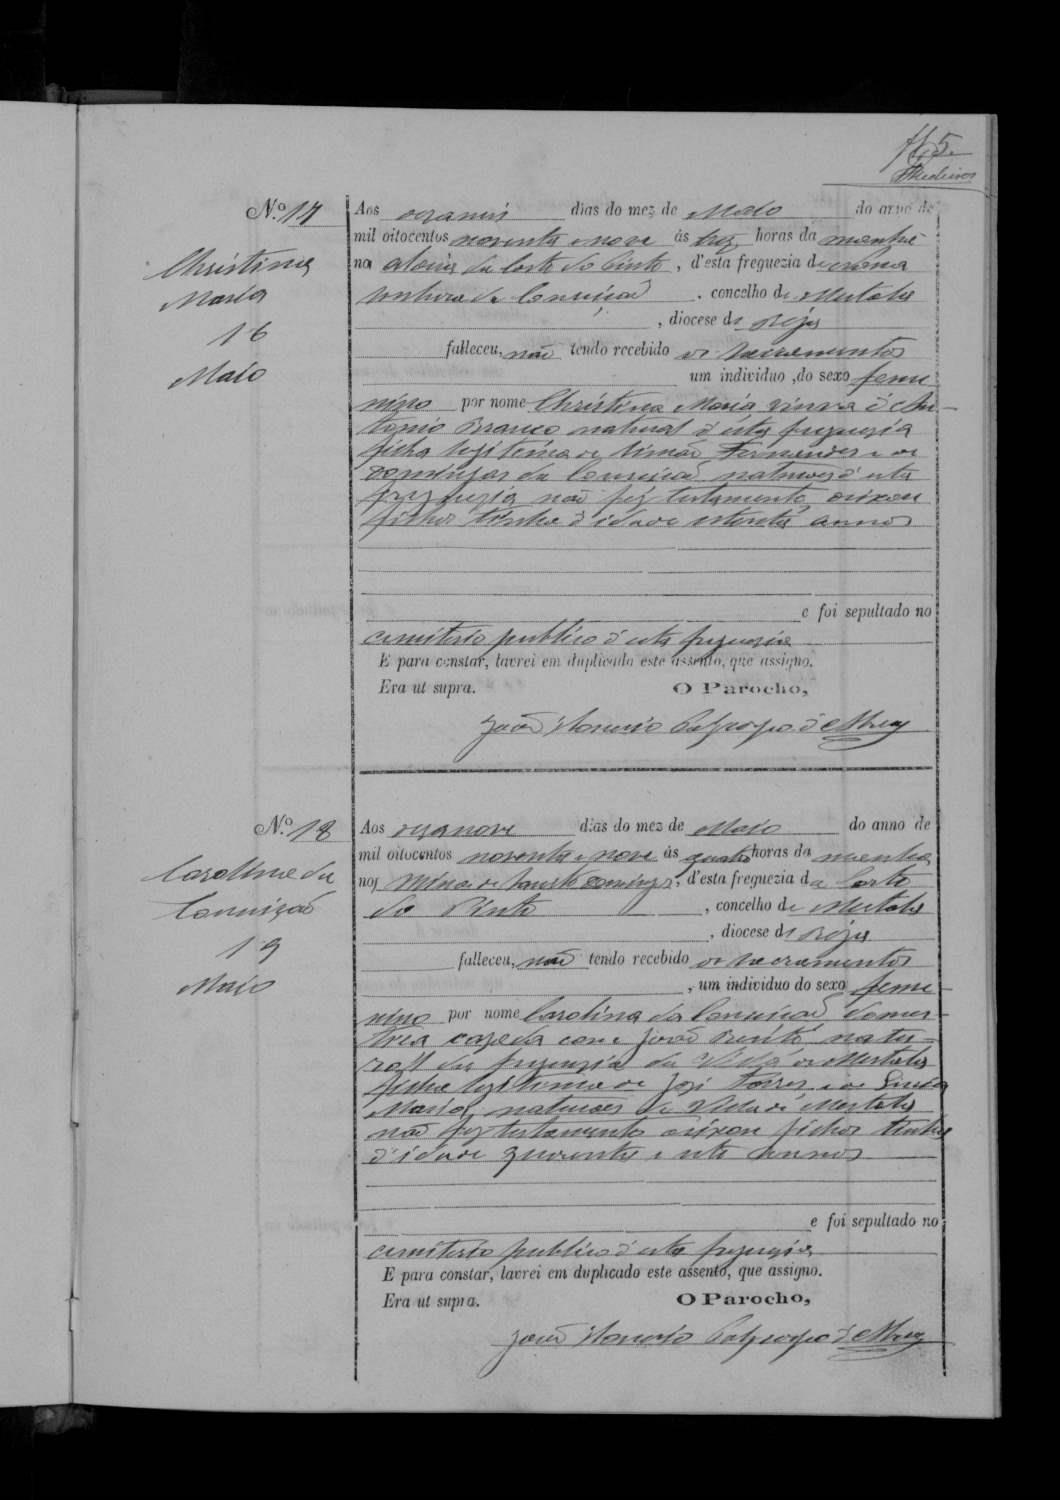 5
Medeiros
N.º 17
Christina
Maria
16
Maio
Aos dezaseis dias do mez de Maio do anno de
mil oitocentos noventa e nove ás trez horas da manhã
na aldeia da Corte do Pinto, d'esta freguezia de nossa
senhora da Conceição, concelho de Mertola
, diocese de Beja
falleceu, não tendo recebido os sacramentos
um individuo, do sexo femi
nino por nome Christina Maria viuva d'An-
tonio natural d'esta freguezia
filha legitima de Simão Fernandes e de
da Conceição naturaes d'esta
freguezia não fez testamento, deixou
filhos tinha d'idade annos
e foi sepultado no
cemiterio publico d'esta freguezia
E para constar, lavrei em duplicado este assento, que assigno.
Era ut supra. O Parocho,
João d'Abreu
N.º 18
Carolina da
Conceição
19
Maio
Aos dezanove dias do mez de Maio do anno de
mil oitocentos noventa e nove ás quatro horas da manhã
na Mina de d'esta freguezia da Corte
do Pinto, concelho de Mertola
, diocese de Beja
falleceu, não tendo recebido os sacramentos
, um individuo do sexo femi
nino por nome Carolina da Conceição domes-
tica cazada com João Bento, natu-
rall da freguezia da Villa de Mertola
filha legitima de José Torres e de
Maria, naturaes da Villa de Mertola
não fez testamento deixou filhos tinha
d'idade quarenta e sete annos
e foi sepultado no
cemiterio publico d'esta freguezia
E para constar, lavrei em duplicado este assento, que assigno.
Era ut supra. O Parocho,
João d'Abreu